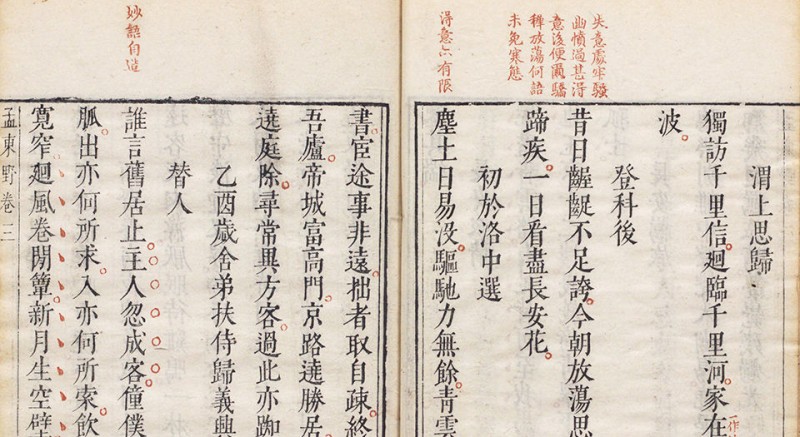 失意處牢騷
幽憤過甚得
意後便爾驕
穉放蕩何語
未免寒態
得意亦有限
渭上思歸
獨訪千里信廻臨千里河家在
一作
波
登科後
昔日齷齪不足誇今朝放蕩思
蹄疾一日看盡長安花
初於洛中選
塵土日易没驅馳力無餘青雲
妙語自造
書宦途事非遠拙者取自疎終
吾廬帝城富高門京路遶勝居
遶庭除尋常異方客過此亦踟
乙酉歲舍弟扶侍歸義興
替人
誰言舊居止主人忽成客僮僕
脈出亦何所求入亦何所索飲
寛窄廻風卷閉簟新月生空壁
孟東野卷三